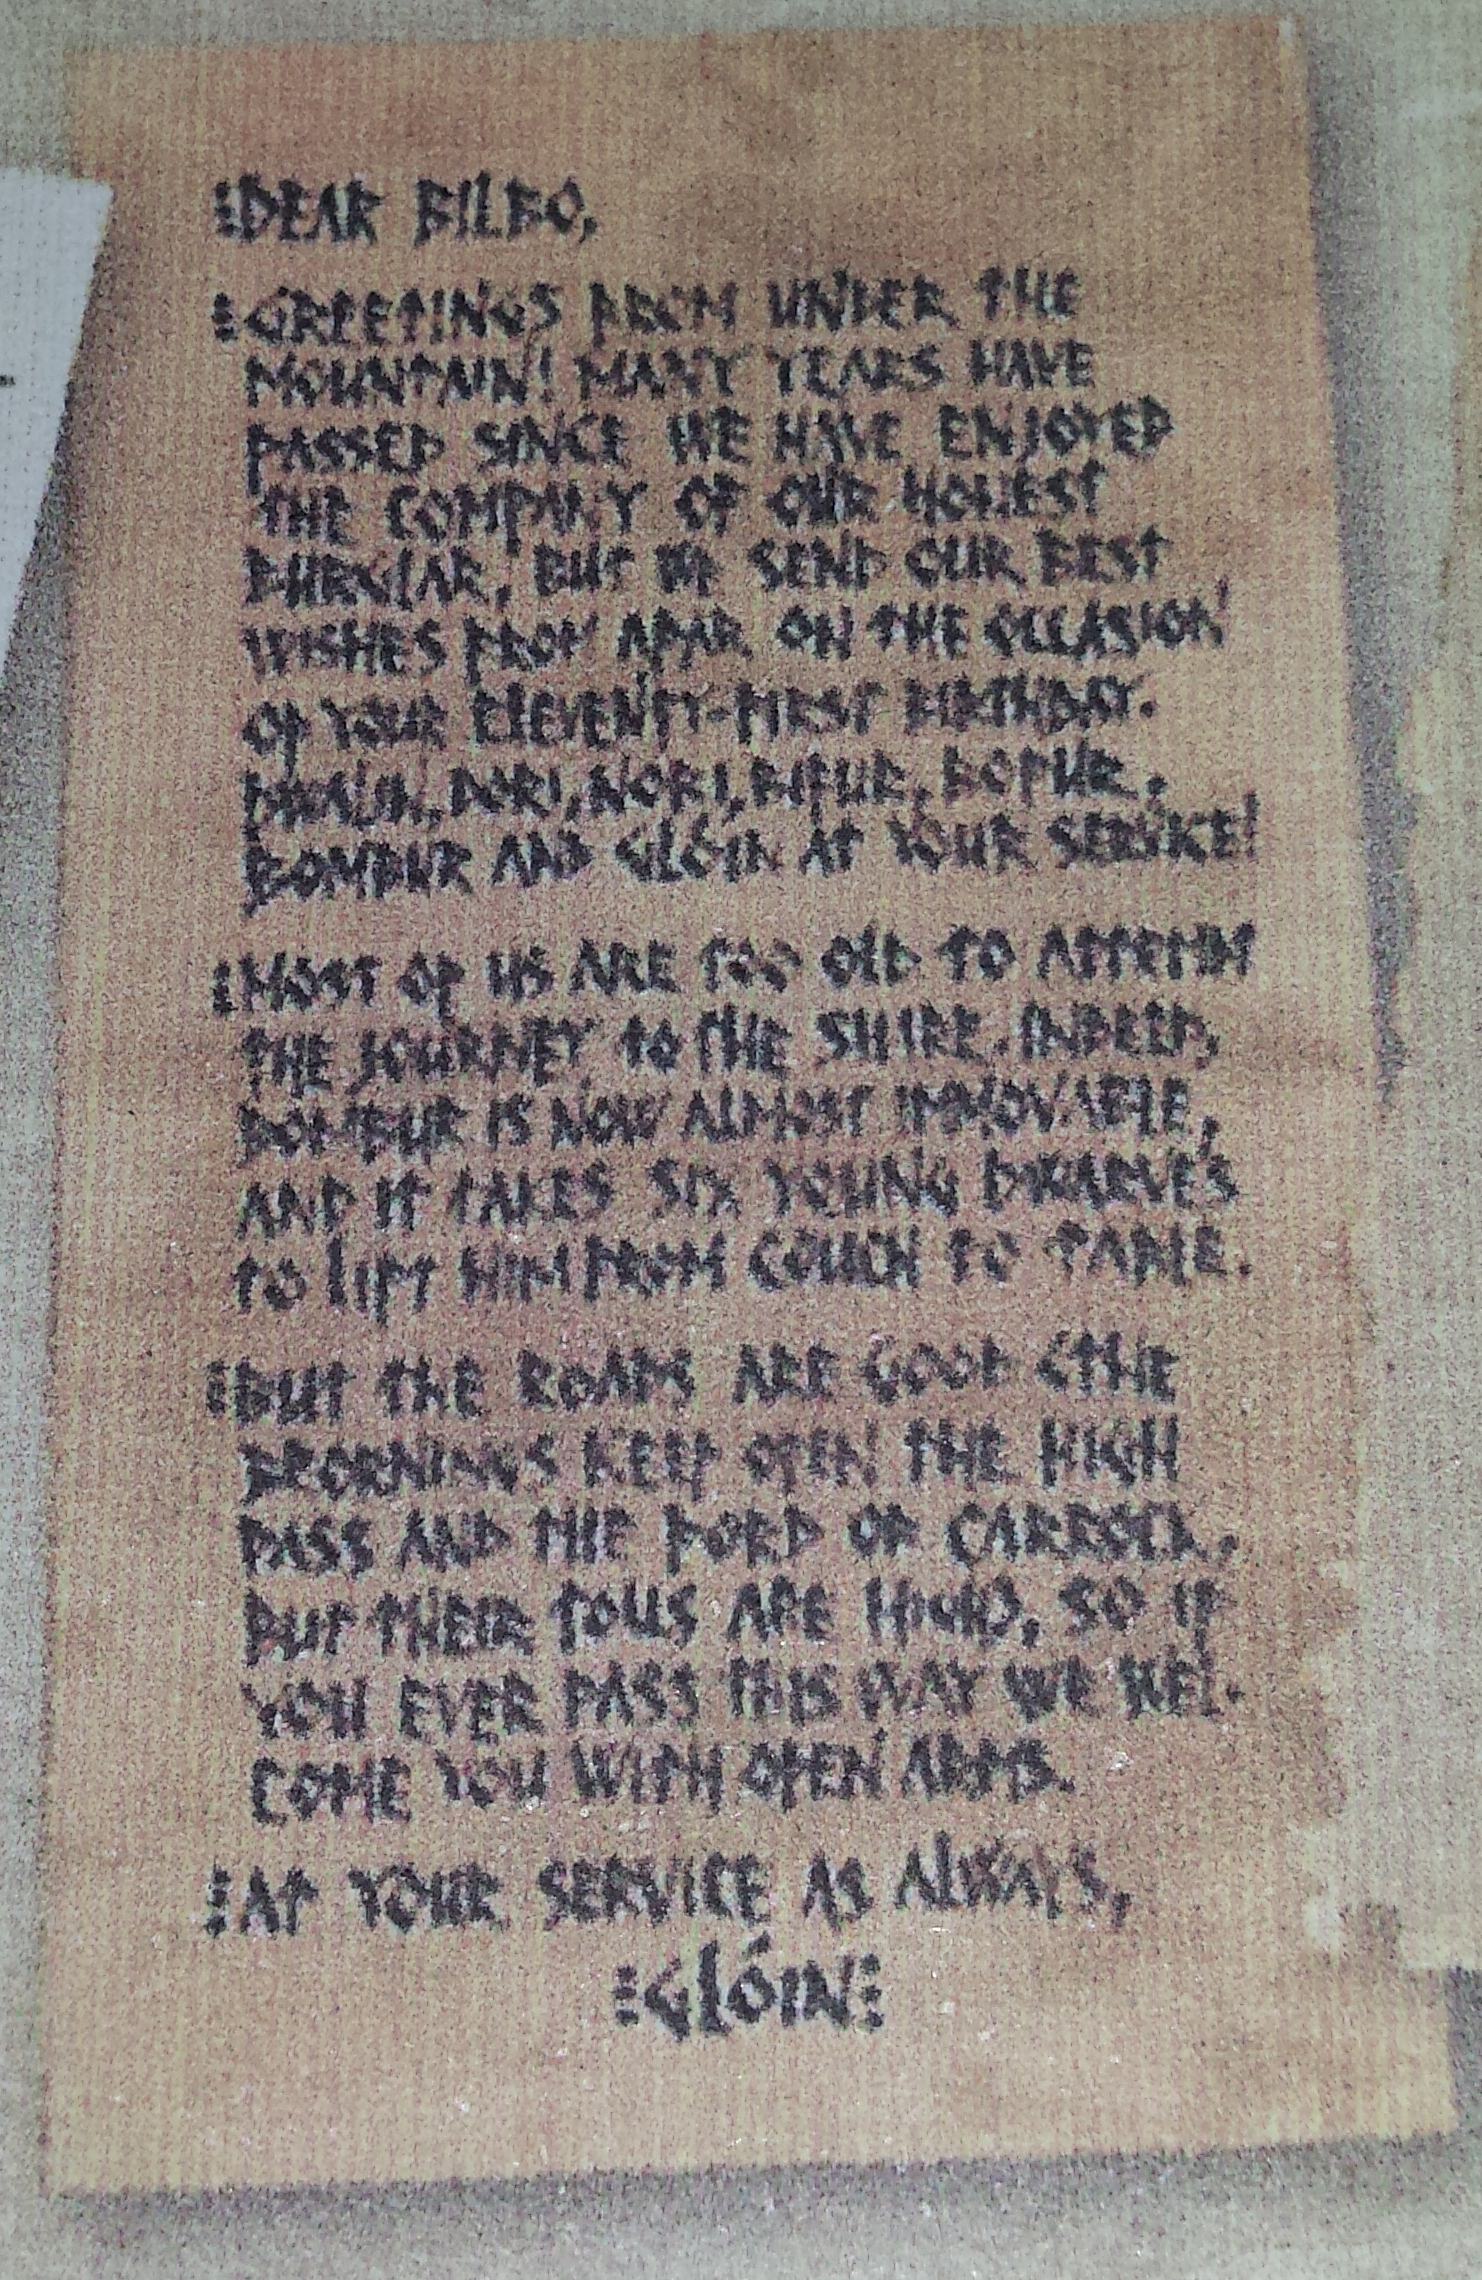 DEAR BILBO,
GREETINGS FROM UNDER THE
MOUNTAIN! MANY YEARS HAVE
PASSED SINCE WE HAVE ENJOYED
THE COMPANY OF OUR HONEST
BURGLAR, BUT WE SEND OUR BEST
WISHES FROM AFAR ON THE OCCASION
OF YOUR ELEVENTY-FIRST BIRTHDAY.
DWALIN, DORI, NORI, BIFUR, BOFUR,
BOMBUR AND GLÓIN AT YOUR SERVICE!
MOST OF US ARE TOO OLD TO ATTEMPT
THE JOURNEY TO THE SHIRE. INDEED,
BOMBUR IS NOW ALMOST IMMOVABLE,
AND IT TAKES SIX YOUNG DWARVES
TO LIFT HIM FROM COUCH TO TABLE.
BUT THE ROADS ARE GOOD & THE
BEORNINGS KEEP OPEN THE HIGH
PASS AND THE FORD OF CARROCK,
BUT THEIR TOLLS ARE HIGH, SO IF
YOU EVER PASS THIS WAY WE WEL-
COME YOU WITH OPEN ARMS.
AT YOUR SERVICE AS ALWAYS,
GLÓIN